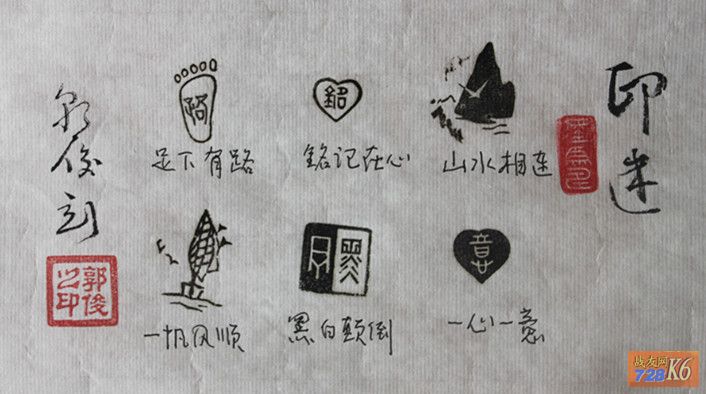 印迷
路
銘
足下有路
銘记在心
山水相连
意
一帆风顺
黑白颠倒
一心一意
郭俊刻
郭俊之印
战友网
728K6